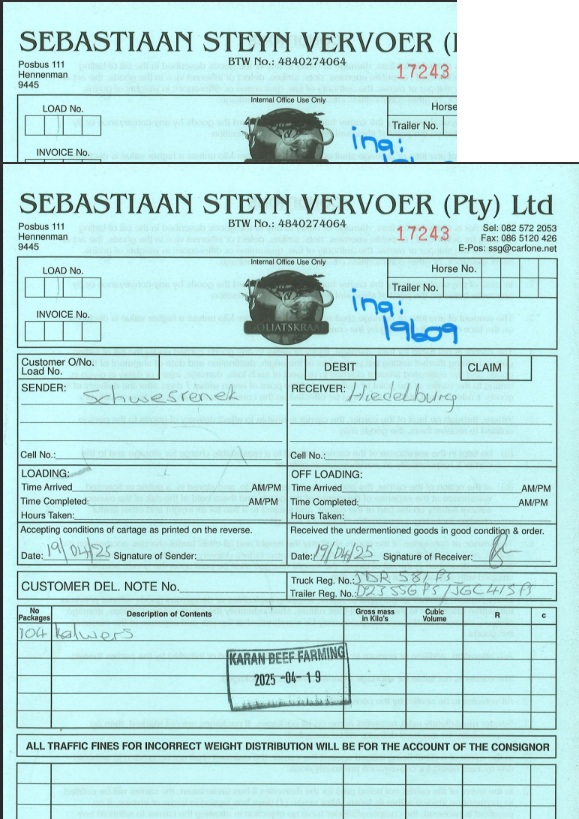 SEBASTIAAN STEYN VERVOER (
Posbus 111
Hennenman
9445
BTW No.: 4840274064
17243
LOAD No.
Internal Office Use Only
Horse
Trailer No.
inq:
INVOICE No.
SEBASTIAAN STEYN VERVOER (Pty) Ltd
Posbus 111
Hennenman
9445
BTW No.: 4840274064
17243
Sel: 082 572 2053
Fax: 086 5120 426
E-Pos: ssg@carfone.net
LOAD No.
Internal Office Use Only
Horse No.
Trailer No.
INVOICE No.
GOLIATSKRAAL
inq:
19609
Customer O/No.
Load No.
DEBIT
CLAIM
SENDER: Schwesrenek
RECEIVER: Hiedelburg
Cell No.:
Cell No.:
LOADING:
OFF LOADING:
Time Arrived AM/PM
Time Arrived AM/PM
Time Completed: AM/PM
Time Completed: AM/PM
Hours Taken:
Hours Taken:
Accepting conditions of cartage as printed on the reverse.
Received the undermentioned goods in good condition & order.
Date: 19/04/25 Signature of Sender:
Date: 19/04/25 Signature of Receiver:
CUSTOMER DEL. NOTE No.
Truck Reg. No.: JDR 581 FS
Trailer Reg. No.:
No Packages
Description of Contents
Gross mass in Kilo's
Cubic Volume
R
c
104 Kalwers
KARAN BEEF FARMING
2025 -04- 19
ALL TRAFFIC FINES FOR INCORRECT WEIGHT DISTRIBUTION WILL BE FOR THE ACCOUNT OF THE CONSIGNOR